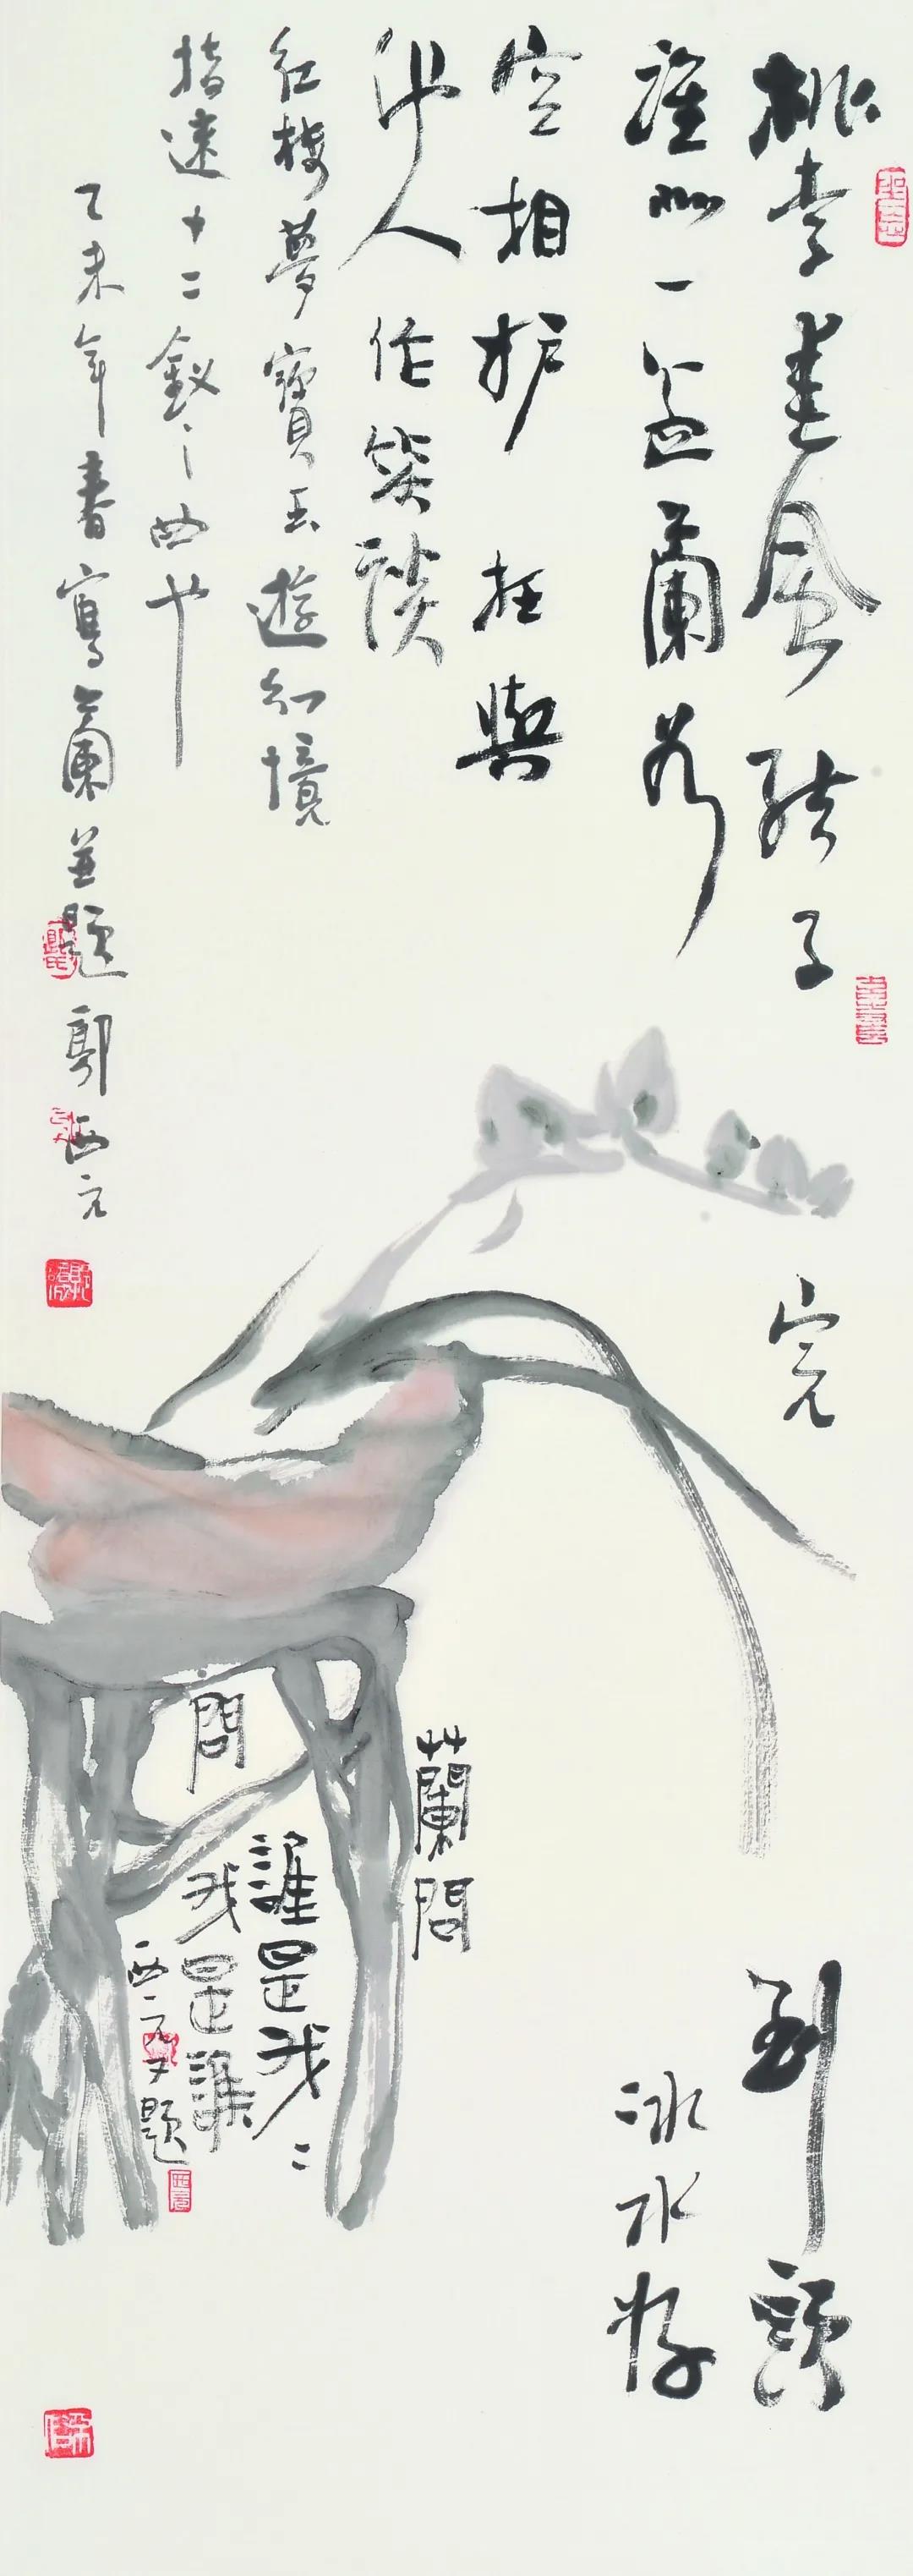 桃李春風結子完到頭
誰似一盆蘭如冰水好
空相护枉與
他人作笑談
紅楼夢寶玉遊幻境
指迷十二釵之
乙未年書寫蘭並題郭西元
蘭問
誰是我〻
問我是誰
西元又題